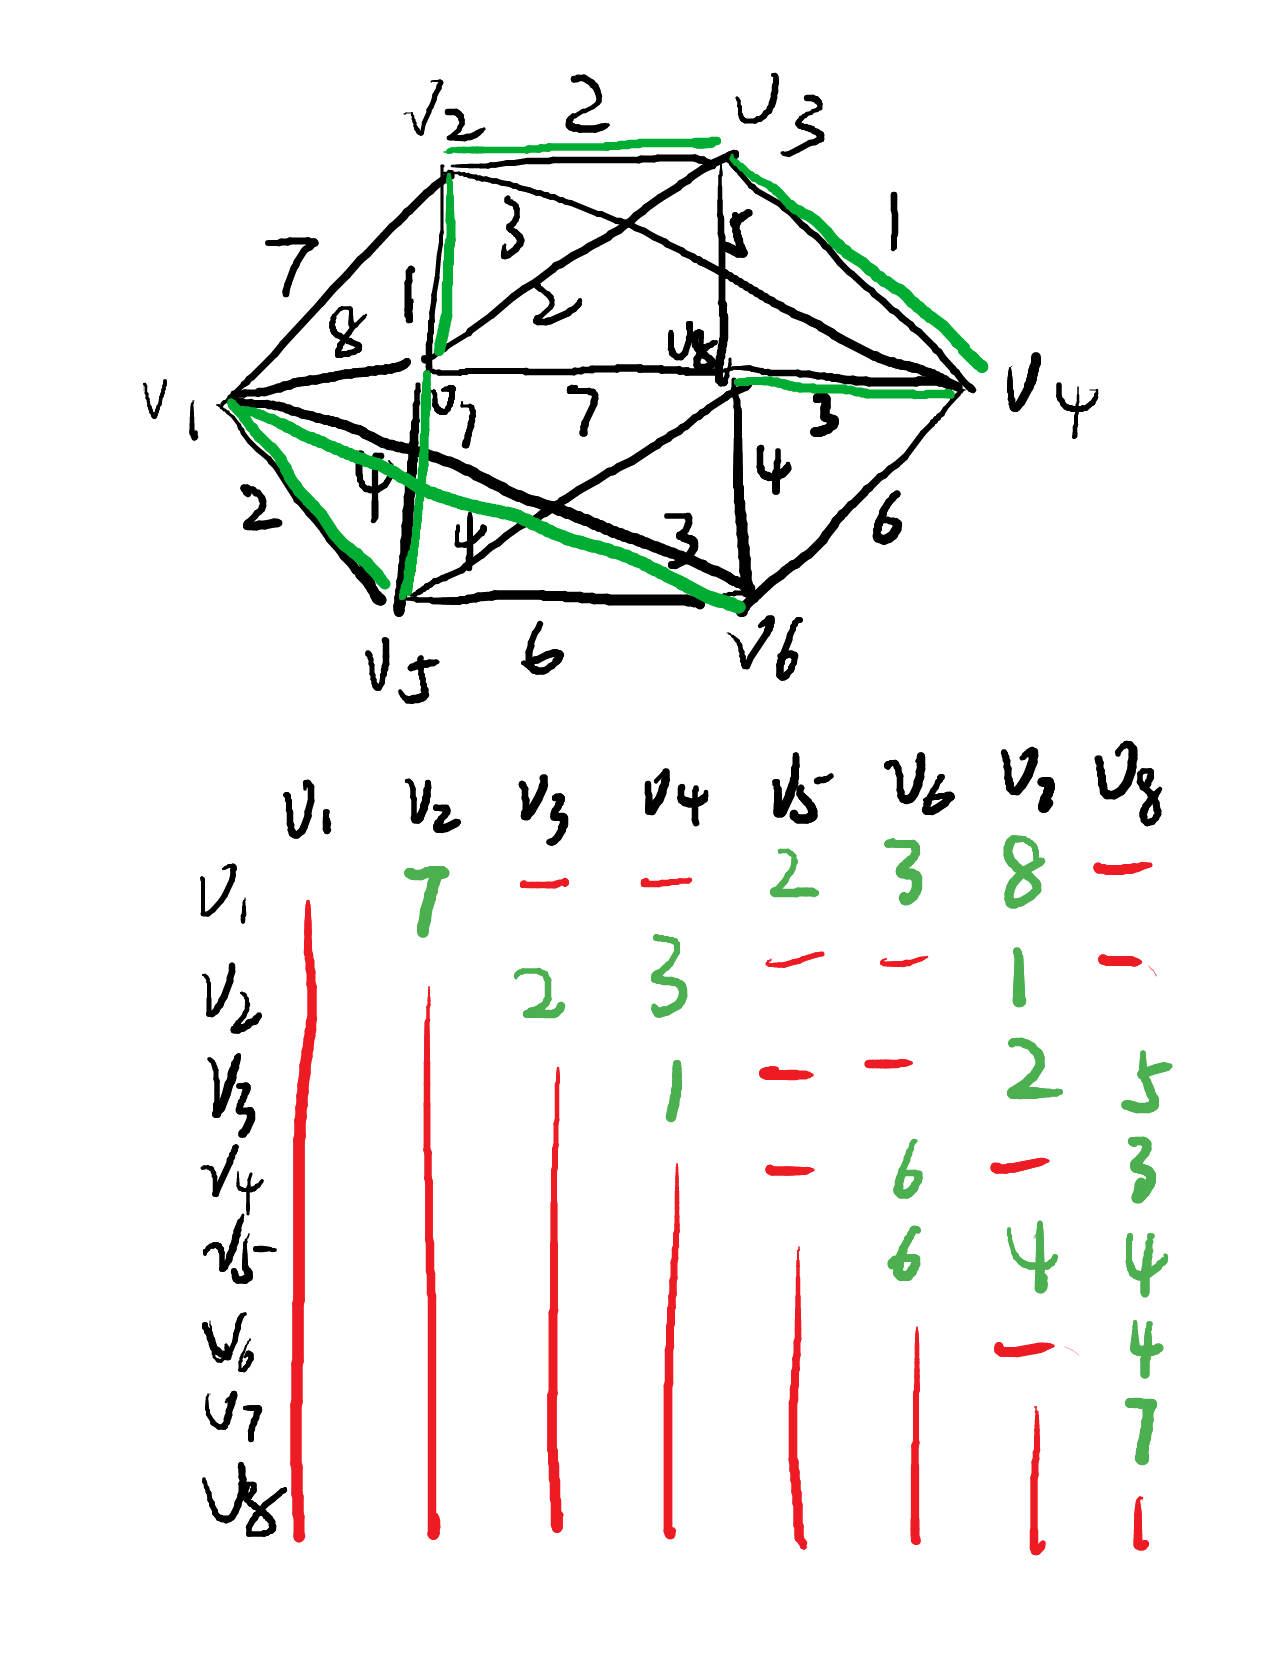 V2 2 V3
7 3 5 1
8 1 2 V8
V1 V7 7 3 V4
2 4 4 3 4 6
V5 6 V6
V1 V2 V3 V4 V5 V6 V7 V8
V1 7 - - 2 3 8 -
V2 2 3 - - 1 -
V3 1 - - 2 5
V4 - 6 - 3
V5 6 4 4
V6 - 4
V7 7
V8